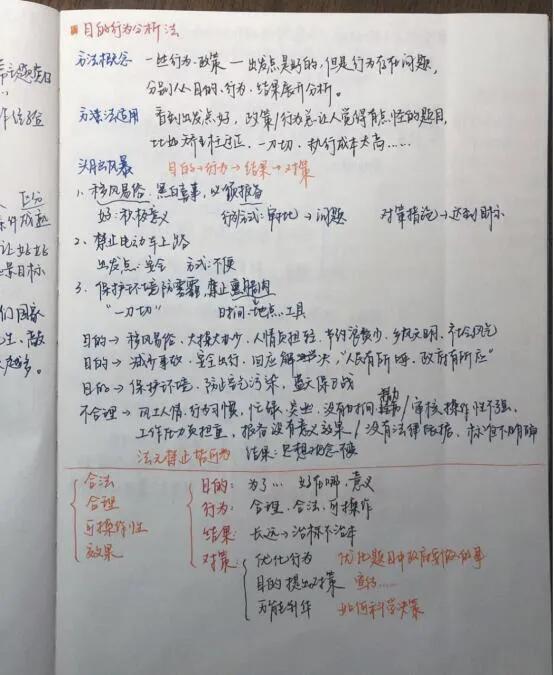 目的行为分析法
方法概念 一些行为、政策 — 出发点是好的,但是行为存在问题,
分别从目的、行为、结果展开分析。
方法适用 看到出发点好,政策/行为总让人觉得有点怪的题目,
比如矫枉过正、一刀切、执行成本太高……
头脑风暴 目的→行为→结果→对策
1、移风易俗、黑白喜事,必须报备
好:积极意义 行为方式:审批→问题 对策措施→达到目标
2、禁止电动车上路
出发点:安全 方式:不便
3、保护环境防雾霾,禁止熏腊肉
"一刀切" 时间、地点、工具
目的→移风易俗、大操大办少、人情负担轻、节约浪费少、乡风文明、社会风气
目的→减少事故、安全出行、回应解决,"人民有所呼、政府有所应"
目的→保护环境、防止空气污染、蓝天保卫战
不合理→风土人情、行为习惯,忙碌、没有时间精力/审核、操作性不强、
工作压力负担重,报备没有意义效果/没有法律依据、标准不明确
法无禁止皆可为 结果:思想观念不变
合法
合理
可操作性
效果
目的:为了… 好在哪,意义
行为:合理、合法、可操作
结果:长远→治标不治本
对策:优化行为 优化题目中政府要做的事
目的提出对策 宣传……
万能制作 如何科学决策
常
题
经验
区分
成熟
让
目标
们国家
生、敢
越多。